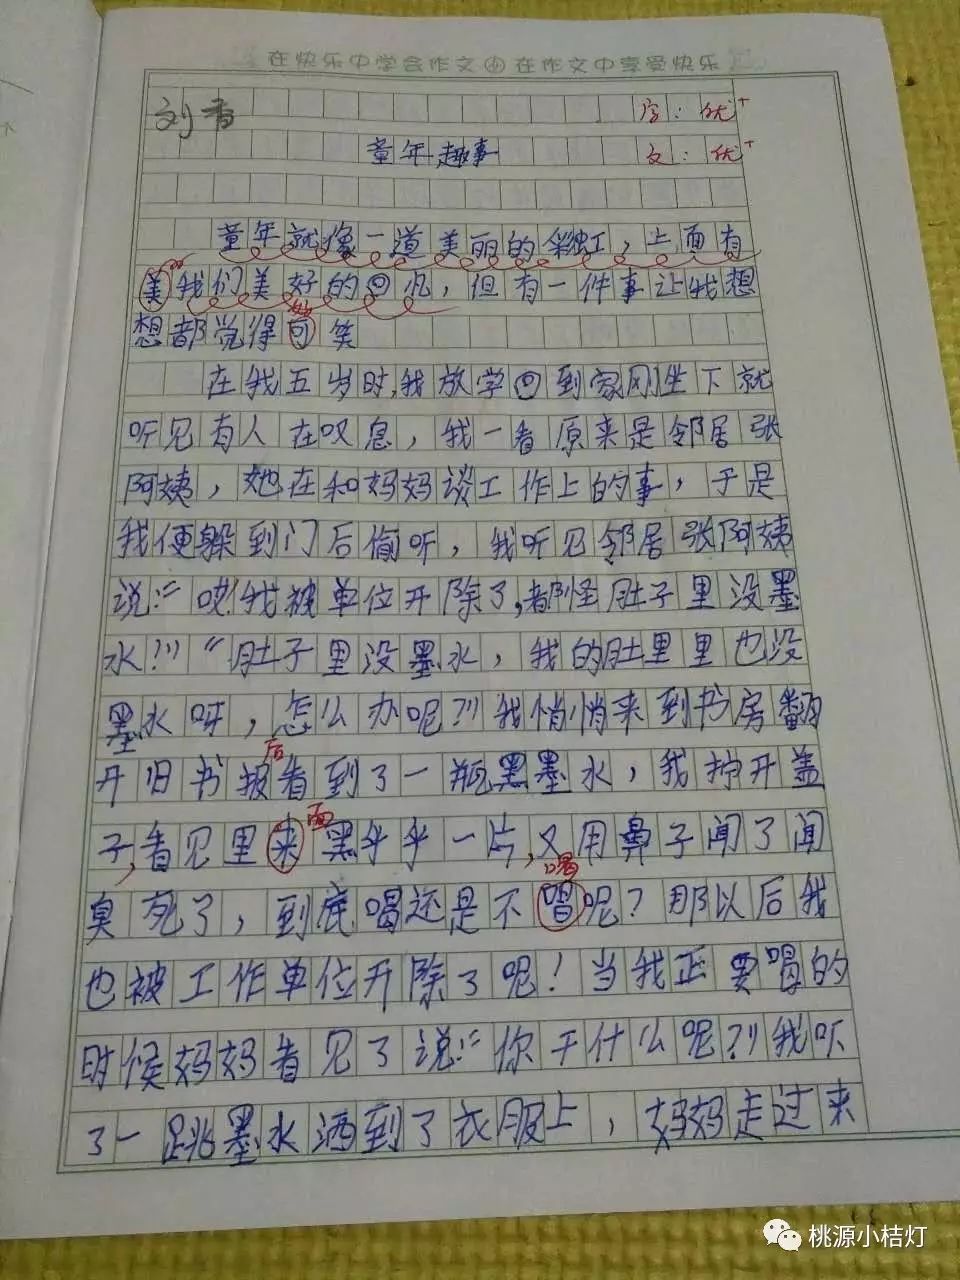 在快乐中学会作文 在作文中享受快乐
刘香 字：优+
童年趣事 文：优+
童年就像一道美丽的彩虹，上面有
美我们美好的回凡，但有一件事让我想
想都觉得可笑
在我五岁时,我放学回到家刚坐下就
听见有人在叹息，我一看原来是邻居张
阿姨，她在和妈妈谈工作上的事，于是
我便躲到门后偷听，我听见邻居张阿姨
说:“哎!我被单位开除了,都怪肚子里没墨
水!”“肚子里没墨水，我的肚里里也没
墨水呀，怎么办呢?”我悄悄来到书房翻
后
开旧书报看到了一瓶黑墨水，我拧开盖
子,看见里来面黑乎乎一片,又用鼻子闻了闻
喝
臭死了，到底喝还是不唱呢？那以后我
也被工作单位开除了呢！当我正要喝的
时候妈妈看见了说:“你干什么呢?”我吓
了一跳墨水洒到了衣服上，妈妈走过来
桃源小桔灯